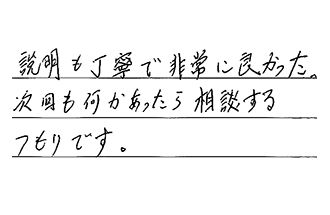 説明も丁寧で非常に良かった。
次回も何かあったら相談する
つもりです。